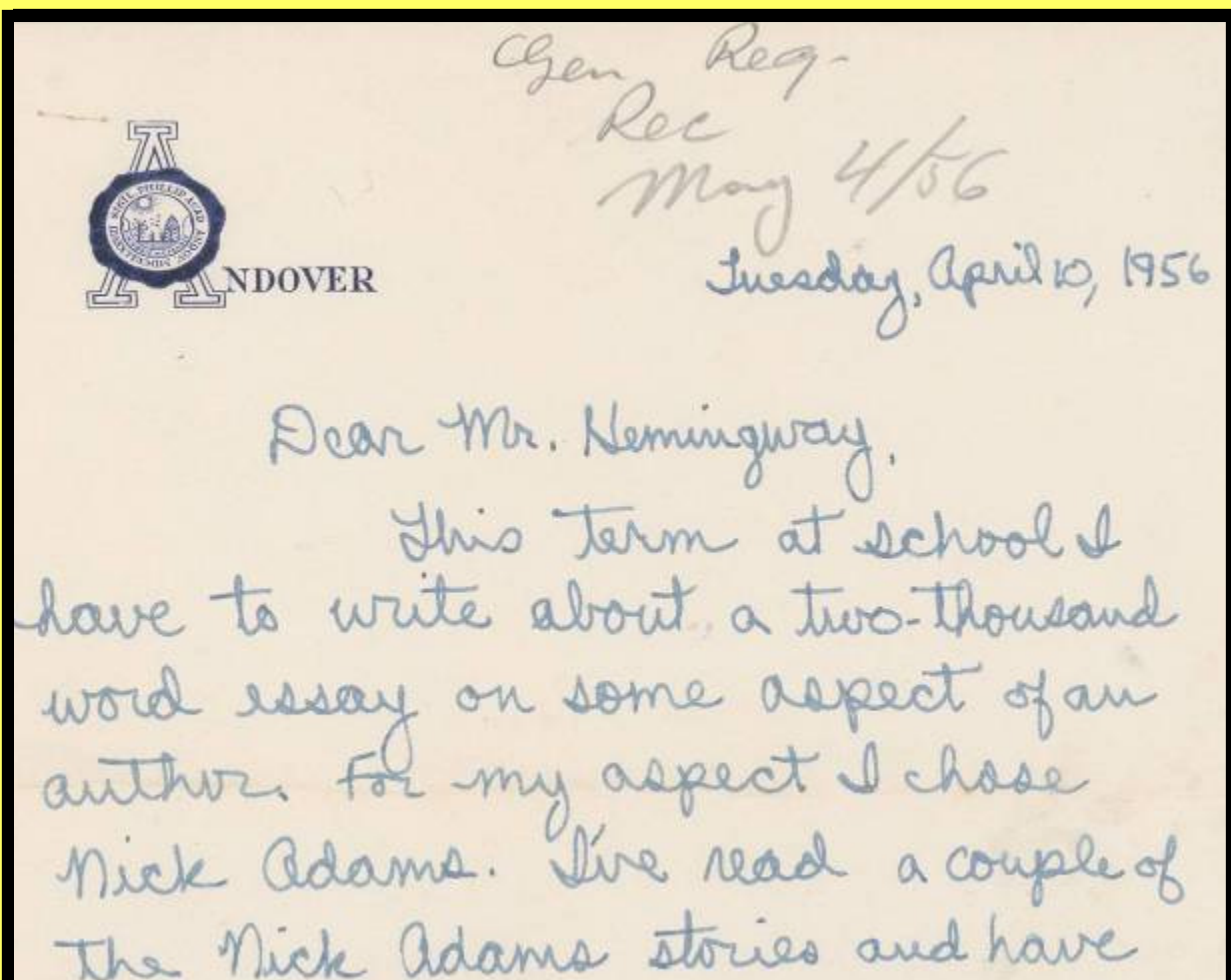 Gen Req-
Rec
May 4/56
ANDOVER
Tuesday, April 10, 1956
Dear Mr. Hemingway,
This term at school I
have to write about a two-thousand
word essay on some aspect of an
author. For my aspect I chose
Nick Adams. I've read a couple of
the Nick Adams stories and have